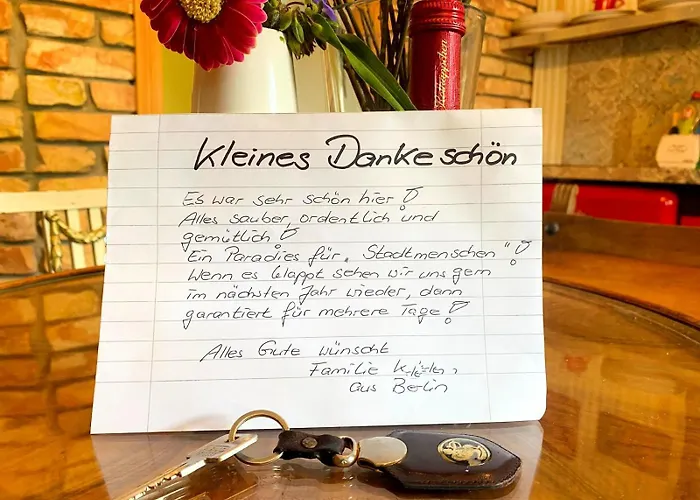 Rotkäppchen
Kleines Dankeschön
Es war sehr schön hier!
Alles sauber, ordentlich und
gemütlich!
Ein Paradies für „Stadtmenschen"!
Wenn es klappt sehen wir uns gern
im nächsten Jahr wieder, dann
garantiert für mehrere Tage!
Alles Gute wünscht
Familie
aus Berlin